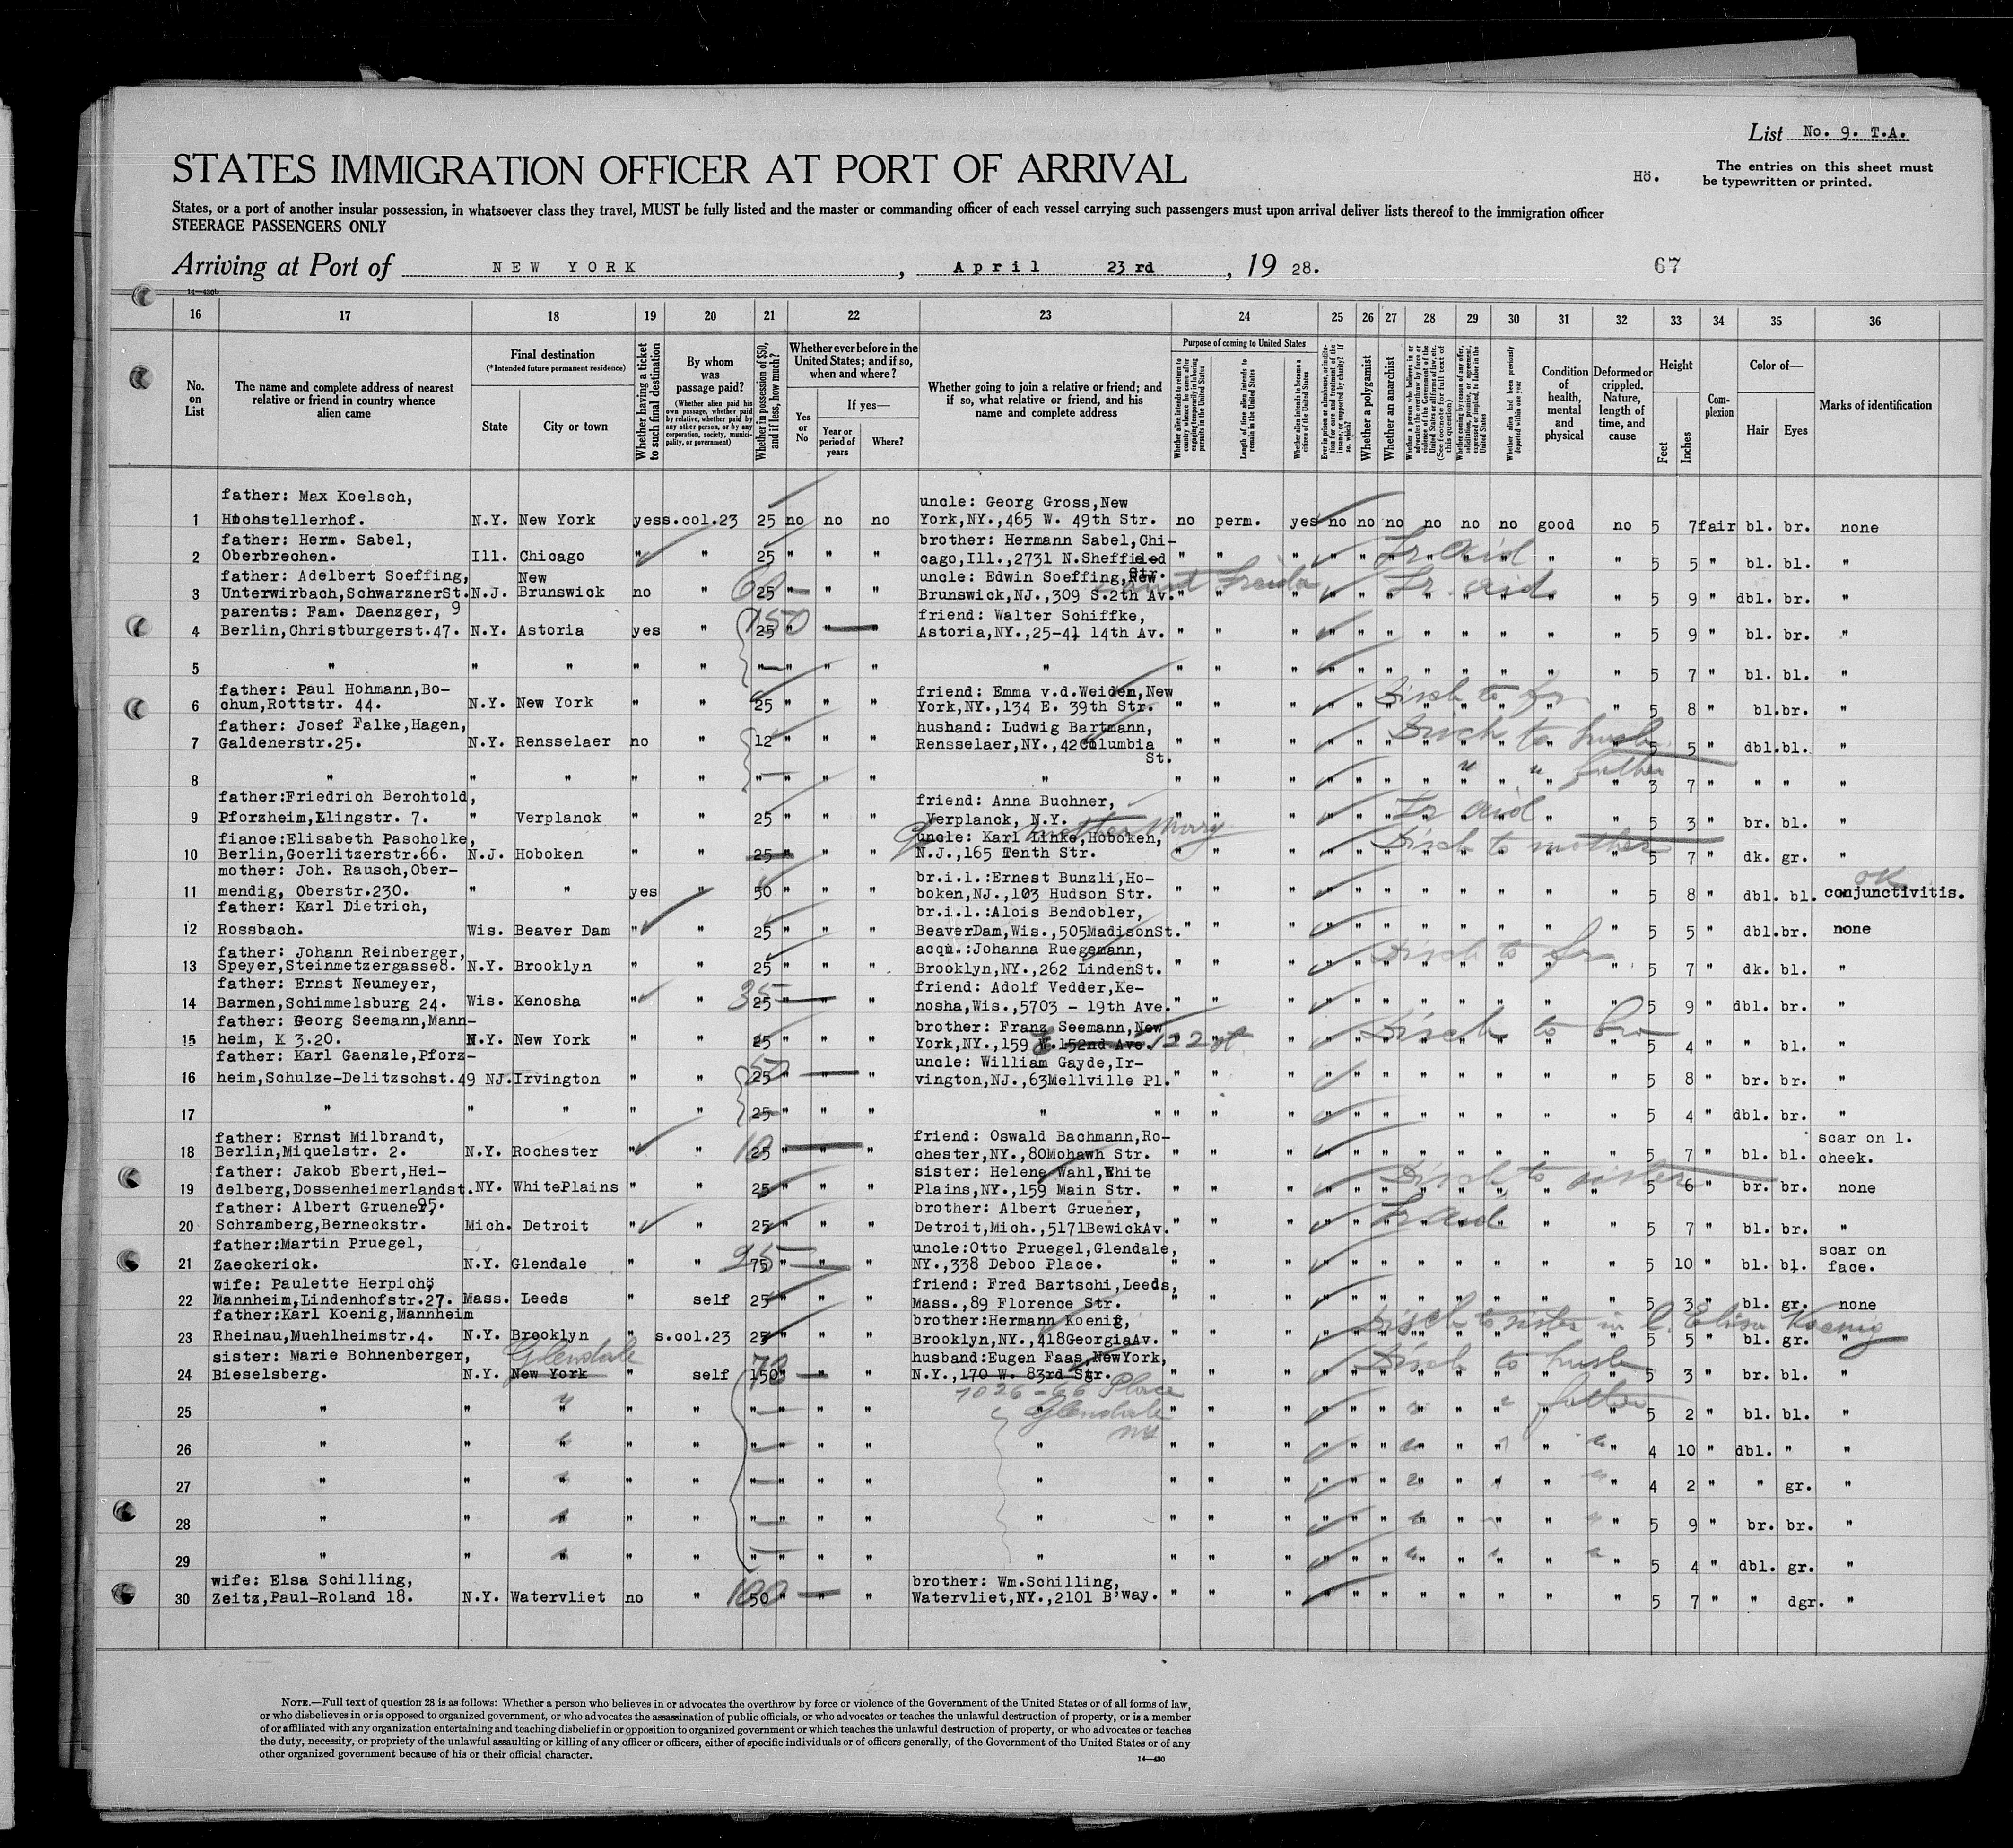 List No. 9. T.A.
STATES IMMIGRATION OFFICER AT PORT OF ARRIVAL
Hö.
The entries on this sheet must
be typewritten or printed.
States, or a port of another insular possession, in whatsoever class they travel, MUST be fully listed and the master or commanding officer of each vessel carrying such passengers must upon arrival deliver lists thereof to the immigration officer
STEERAGE PASSENGERS ONLY
Arriving at Port of NEW YORK, April 23rd, 19 28.
67
14—430b
16 17 18 19 20 21 22 23 24 25 26 27 28 29 30 31 32 33 34 35 36
No. on List
The name and complete address of nearest relative or friend in country whence alien came
Final destination
(*Intended future permanent residence)
State
City or town
Whether having a ticket to such final destination
By whom was passage paid?
(Whether alien paid his own passage, whether paid by relative, whether paid by any other person, or by any corporation, society, municipality, or government)
Whether in possession of $50, and if less, how much?
Whether ever before in the United States; and if so, when and where?
Yes or No
If yes—
Year or period of years
Where?
Whether going to join a relative or friend; and if so, what relative or friend, and his name and complete address
Purpose of coming to United States
Whether alien intends to return to country whence he came after engaging temporarily in laboring pursuits in the United States
Length of time alien intends to remain in the United States
Whether alien intends to become a citizen of the United States
Ever in prison or almshouse, or institution for care and treatment of the insane, or supported by charity? If so, which?
Whether a polygamist
Whether an anarchist
Whether a person who believes in or advocates the overthrow by force or violence of the Government of the United States or all forms of law, etc. (See footnote for full text of this question)
Whether coming by reason of any offer, solicitation, promise, or agreement, expressed or implied, to labor in the United States
Whether alien had been previously deported within one year
Condition of health, mental and physical
Deformed or crippled. Nature, length of time, and cause
Height
Feet
Inches
Complexion
Color of—
Hair
Eyes
Marks of identification
father: Max Koelsch,
uncle: Georg Gross,New
1 Hochstellerhof. N.Y. New York yes s.col.23 25 no no no York,NY.,465 W. 49th Str. no perm. yes no no no no no no good no 5 7 fair bl. br. none
father: Herm. Sabel,
brother: Hermann Sabel,Chi-
2 Oberbrechen. Ill. Chicago " " 25 " " " cago,Ill.,2731 N.Sheffield Str. " " " " " " " " " " " 5 5 " bl. bl. "
Tr aid
father: Adelbert Soeffing,
New
uncle: Edwin Soeffing,New
3 Unterwirbach,SchwarznerSt. 9 N.J. Brunswick no " 25 " " " Brunswick,NJ.,309 S.2th Av. " " " " " " " " " " " 5 9 " dbl. br. "
60
Tr. aid
parents: Fam. Daenzger,
friend: Walter Schiffke,
4 Berlin,Christburgerst.47. N.Y. Astoria yes " 25 " " " Astoria,NY.,25-41 14th Av. " " " " " " " " " " " 5 9 " bl. br. "
150
5 " " " " " " " " " " " " " " " " " " " " " " 5 7 " bl. bl. "
father: Paul Hohmann,Bo-
friend: Emma v.d.Weiden,New
6 chum,Rottstr. 44. N.Y. New York " " 25 " " " York,NY.,134 E. 39th Str. " " " " " " " " " " " 5 8 " bl. br. "
Disch to fr
father: Josef Falke,Hagen,
husband: Ludwig Bartmann,
7 Galdenerstr.25. N.Y. Rensselaer no " 12 " " " Rensselaer,NY.,42Columbia St. " " " " " " " " " " " 5 5 " dbl. bl. "
Disch to husb
8 " " " " " " " " " " " " " " " " " " " " " " 3 7 " " " "
" " father
father:Friedrich Berchtold,
friend: Anna Buchner,
9 Pforzheim,Klingstr. 7. " Verplanck " " 25 " " " Verplanck, N.Y. " " " " " " " " " " " 5 3 " br. bl. "
Tr aid
mother Mary
fiance:Elisabeth Pascholke,
uncle: Karl Linke,Hoboken,
10 Berlin,Goerlitzerstr.66. N.J. Hoboken " " 25 " " " N.J.,165 Tenth Str. " " " " " " " " " " " 5 7 " dk. gr. "
Disch to mother
mother: Joh. Rausch,Ober-
br.i.l.:Ernest Bunzli,Ho-
11 mendig, Oberstr.230. " " yes " 50 " " " boken,NJ.,103 Hudson Str. " " " " " " " " " " " 5 8 " dbl. bl. conjunctivitis.
OK
father: Karl Dietrich,
br.i.l.:Alois Bendobler,
12 Rossbach. Wis. Beaver Dam " " 25 " " " BeaverDam,Wis.,505MadisonSt. " " " " " " " " " " " 5 5 " dbl. br. none
father: Johann Reinberger,
acqu.:Johanna Ruegemann,
13 Speyer,Steinmetzergasse8. N.Y. Brooklyn " " 25 " " " Brooklyn,NY.,262 LindenSt. " " " " " " " " " " " 5 7 " dk. bl. "
Disch to fr
father: Ernst Neumeyer,
friend: Adolf Vedder,Ke-
14 Barmen,Schimmelsburg 24. Wis. Kenosha " " 25 " " " nosha,Wis.,5703 - 19th Ave. " " " " " " " " " " " 5 9 " dbl. br. "
35
father: Georg Seemann,Mann-
brother: Franz Seemann,New
15 heim, K 3.20. N.Y. New York " " 25 " " " York,NY.,159 W. 152nd Ave. " " " " " " " " " " " 5 4 " " bl. "
E 122 st
Disch to bro
father: Karl Gaenzle,Pforz-
uncle: William Gayde,Ir-
16 heim,Schulze-Delitzschst.49 NJ. Irvington " " 25 " " " vington,NJ.,63Mellville Pl. " " " " " " " " " " " 5 8 " br. br. "
50
17 " " " " " 25 " " " " " " " " " " " " " " " " 5 4 " dbl. br. "
father: Ernst Milbrandt,
friend: Oswald Bachmann,Ro-
scar on l.
18 Berlin,Miquelstr. 2. N.Y. Rochester " " 25 " " " chester,NY.,80Mohawh Str. " " " " " " " " " " " 5 7 " bl. bl. cheek.
father: Jakob Ebert,Hei-
sister: Helene Wahl,White
19 delberg,Dossenheimerlandst. 95. NY. WhitePlains " " 25 " " " Plains,NY.,159 Main Str. " " " " " " " " " " " 5 6 " br. br. none
Disch to sister
father: Albert Gruener,
brother: Albert Gruener,
20 Schramberg,Berneckstr. Mich. Detroit " " 25 " " " Detroit,Mich.,5171BewickAv. " " " " " " " " " " " 5 7 " bl. br. "
Tr aid
father:Martin Pruegel,
uncle:Otto Pruegel,Glendale,
scar on
21 Zaeckerick. N.Y. Glendale " " 75 " " " NY.,338 Deboo Place. " " " " " " " " " " " 5 10 " bl. bl. face.
95
wife: Paulette Herpich,
friend: Fred Bartschi,Leeds,
22 Mannheim,Lindenhofstr.27. Mass. Leeds " self 25 " " " Mass.,89 Florence Str. " " " " " " " " " " " 5 3 " bl. gr. none
father:Karl Koenig,Mannheim
brother:Hermann Koenig,
23 Rheinau,Muehlheimstr.4. N.Y. Brooklyn " s.col.23 25 " " " Brooklyn,NY.,418GeorgiaAv. " " " " " " " " " " " 5 5 " bl. gr. "
Disch to sister in l. Elisa Koenig
Glendale
sister: Marie Bohnenberger,
husband:Eugen Faas,NewYork,
24 Bieselsberg. N.Y. New York " self 150 " " " N.Y.,170 W. 83rd Str. " " " " " " " " " " " 5 3 " br. bl. "
73
Disch to husb
1026-66 Place
Glendale
NY
25 " " " " " " " " " " " " " " " " " " " " " " 5 2 " bl. bl. "
" " father
26 " " " " " " " " " " " " " " " " " " " " " " 4 10 " dbl. " "
27 " " " " " " " " " " " " " " " " " " " " " " 4 2 " " gr. "
28 " " " " " " " " " " " " " " " " " " " " " " 5 9 " br. br. "
29 " " " " " " " " " " " " " " " " " " " " " " 5 4 " dbl. gr. "
wife: Elsa Schilling,
brother: Wm.Schilling,
30 Zeitz,Paul-Roland 18. N.Y. Watervliet no " 50 " " " Watervliet,NY.,2101 B'way. " " " " " " " " " " " 5 7 " " dgr. "
100
NOTE.—Full text of question 28 is as follows: Whether a person who believes in or advocates the overthrow by force or violence of the Government of the United States or of all forms of law,
or who disbelieves in or is opposed to organized government, or who advocates the assassination of public officials, or who advocates or teaches the unlawful destruction of property, or is a member
of or affiliated with any organization entertaining and teaching disbelief in or opposition to organized government or which teaches the unlawful destruction of property, or who advocates or teaches
the duty, necessity, or propriety of the unlawful assaulting or killing of any officer or officers, either of specific individuals or of officers generally, of the Government of the United States or of any
other organized government because of his or their official character.
14—430